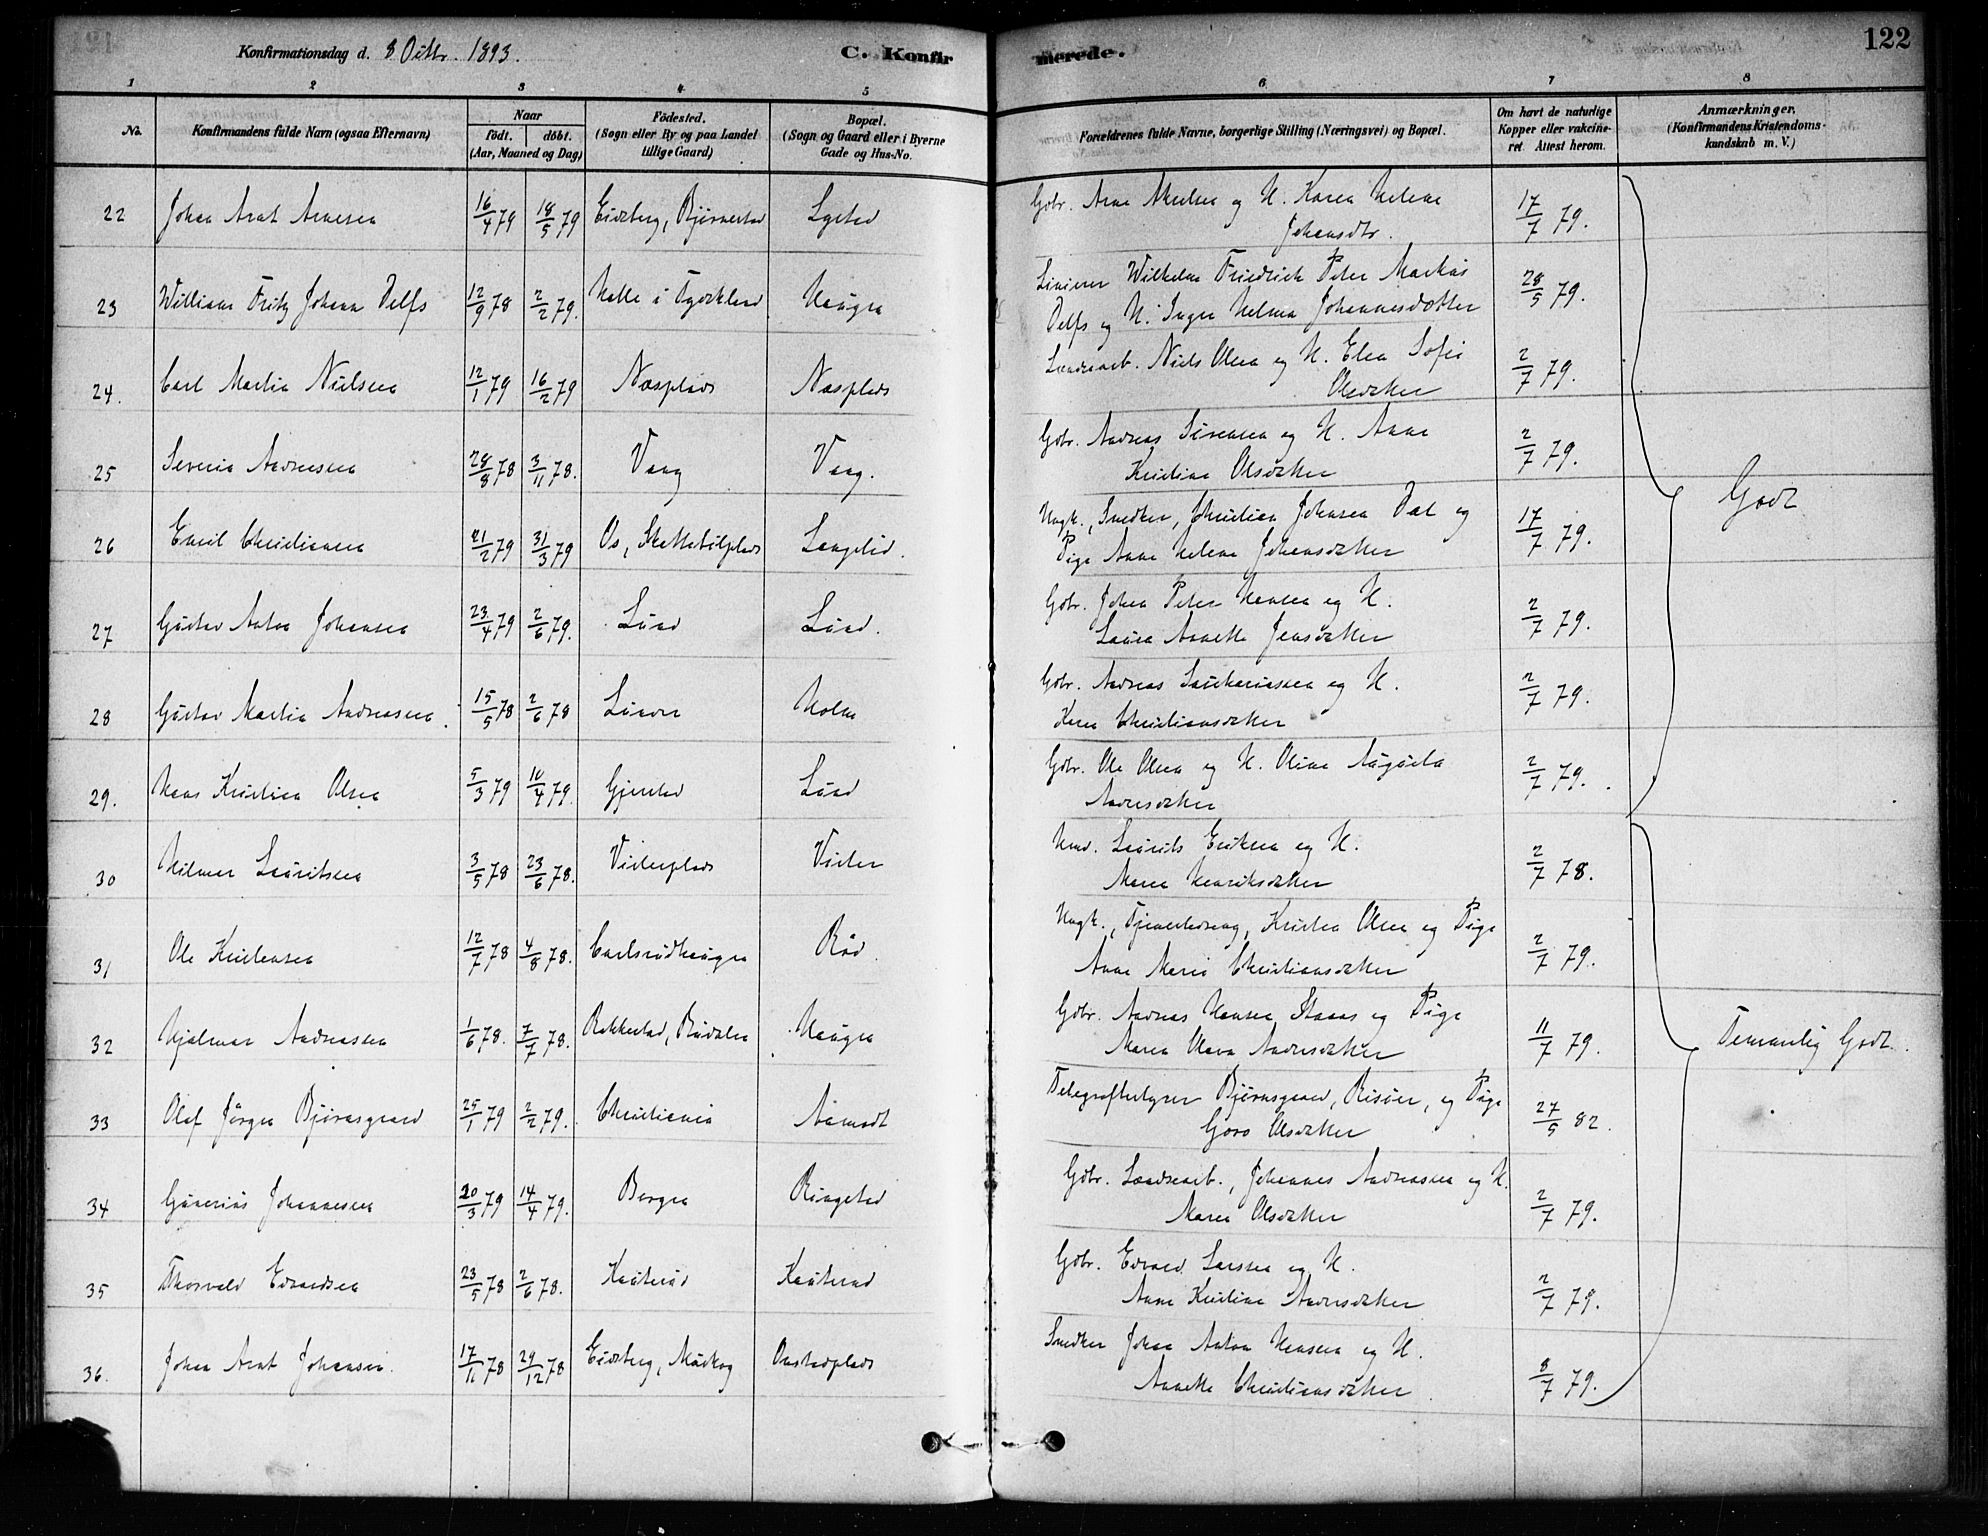 Konfirmationsdag d. 8 Octbr. 1893.
C. Konfirmerede.
122
1 2 3 4 5 6 7 8
No.
Konfirmandens fulde Navn (ogsaa Efternavn)
Naar
født. døbt.
(Aar, Maaned og Dag)
Fødested.
(Sogn eller By og paa Landet
tillige Gaard)
Bopæl.
(Sogn og Gaard eller i Byerne
Gade og Hus-No.
Forældrenes fulde Navne, borgerlige Stilling (Næringsvei) og Bopæl.
Om havt de naturlige
Kopper eller vakcine-
ret. Attest herom.
Anmærkninger.
(Konfirmandens Kristendoms-
kundskab m. V.)
22 Johan Arnt Arnesen 16/4 79 18/5 79 Eidsberg, Bjørnestad Lystad Gbr. Arne Nielsen og H. Karen Helene
Johansdtr. 17/7 79.
23 William Fritz Johann Delfs 12/9 78 2/2 79. Halle i Tydskland Haugen Wilhelm Friedrich Peter Markus
Delfs og H. Inger Helma Johannesdotter 28/5 79.
24. Carl Martin Nielsen 12/1 79 16/2 79 Næsplads Næsplads Niels Olsen og H. Elen Sofie
Olsdatter 2/7 79.
25 Severin Andresen 28/8 78 3/11 78. Vang Vang. Gbr. Andreas Sørensen og H. Anne
Kristine Olsdatter 2/7 79.
Godt
26 Emil Christiansen 21/2 79 31/3 79 Os, Langelid. Ungk., Snedker, Christian Johnsen Dæl og
Pige Anne Helene Johansdatter 17/7 79.
27 Gustav Anton Johansen 23/4 79 2/6 79. Lund Lund. Gbr. Johan Peter Hansen og H.
Laura Annette Jensdatter 2/7 79.
28 Gustav Martin Andreasen. 15/5 78 2/6 78 Holm Gbr. Andreas Sakariassen og H.
Karen Christiansdatter 2/7 79.
29. Hans Kristian Olsen 5/3 79 10/4 79. Gjerstad Lund Gbr. Ole Olsen og H. Oline Augusta
Andersdatter 2/7 79.
30 Hilmer Lauritsen 3/5 78 23/6 78. Visterplads Vister Hmd. Laurits Eriksen og H.
Maren Henriksdatter 2/7 78.
31 Ole Kristensen 12/7 78 4/8 78. Carlsrudhaugen Rød Ungk., Tjenestedreng, Kristen Olsen og Pige
Anne Marie Christiansdatter 2/7 79.
32 Hjalmar Andreassen 1/6 78. 7/7 78. Rakkestad, Haugen Gbr. Andreas Hansen og Pige
Maren Andersdatter 11/7 79.
Temmelig Godt.
33 Olaf Jørgen Bjørnsgaard 25/1 79 2/2 79. Christiania Aamodt Telegrafbestyrer Bjørnsgaard, Risøer, og Pige
Goro Olsdatter 27/5 82.
34 Gunerius Johannesen 20/3 79 14/4 79. Bergen Ringstad Gbr. Landsearb., Johannes Andreassen og H.
Maren Olsdatter 2/7 79.
35 Thorvald Edvardsen 23/5 78 2/6 78. Knuterød Knuterud Gbr. Edvard Larsen og H.
Anne Kristine Andersdatter 2/7 79.
36. Johan Arnt Johansen. 17/11 78 29/12 78 Eidsberg, Onstadplads Snedker Johan Anton Hansen og H.
Annette Christiansdatter 8/7 79.